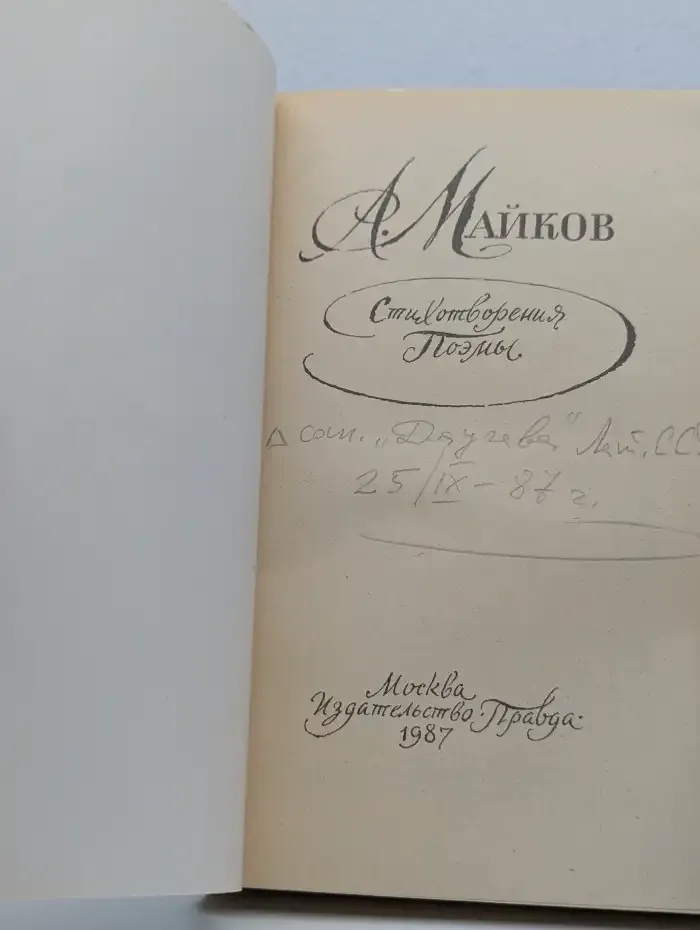 А. Майков
Стихотворения
Поэмы
Δ сан. „Даугава“ Лат. СС
25/IX – 87 г.
Москва
Издательство „Правда“
1987